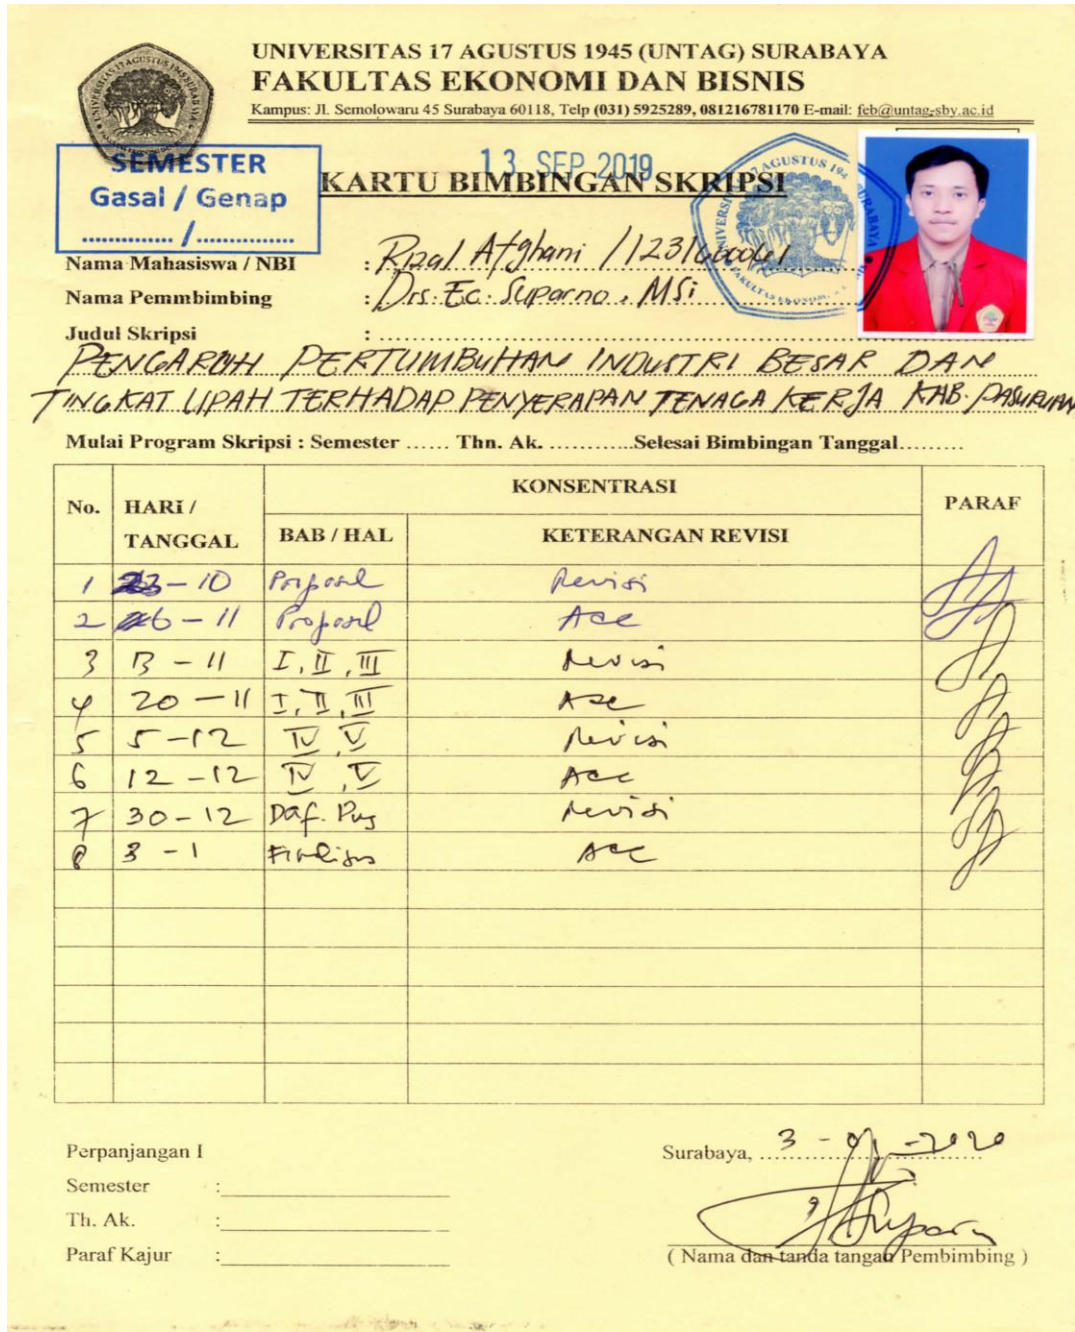 UNIVERSITAS 17 AGUSTUS 1945 (UNTAG) SURABAYA
FAKULTAS EKONOMI DAN BISNIS
Kampus: Jl. Semolowaru 45 Surabaya 60118, Telp (031) 5925289, 081216781170 E-mail: feb@untag-sby.ac.id
SEMESTER
Gasal / Genap
............. / ..............
13 SEP 2019
KARTU BIMBINGAN SKRIPSI
Nama Mahasiswa / NBI : Rizal Afghani / 1231600061
Nama Pemmbimbing : Drs. Ec. Suparno, MSi
Judul Skripsi :
PENGARUH PERTUMBUHAN INDUSTRI BESAR DAN
TINGKAT UPAH TERHADAP PENYERAPAN TENAGA KERJA KAB. PASURUAN
Mulai Program Skripsi : Semester ...... Thn. Ak. ............Selesai Bimbingan Tanggal.........
No. HARI / TANGGAL KONSENTRASI PARAF
BAB / HAL KETERANGAN REVISI
1 23 - 10 Proposal Revisi
2 6 - 11 Proposal Acc
3 13 - 11 I, II, III Revisi
4 20 - 11 I, II, III Acc
5 5 - 12 IV, V Revisi
6 12 - 12 IV, V Acc
7 30 - 12 Daf. Pus Revisi
8 3 - 1 Acc
Perpanjangan I
Surabaya, 3 - 01 - 2020
Semester :
Th. Ak. :
Paraf Kajur :
( Nama dan tanda tangan Pembimbing )